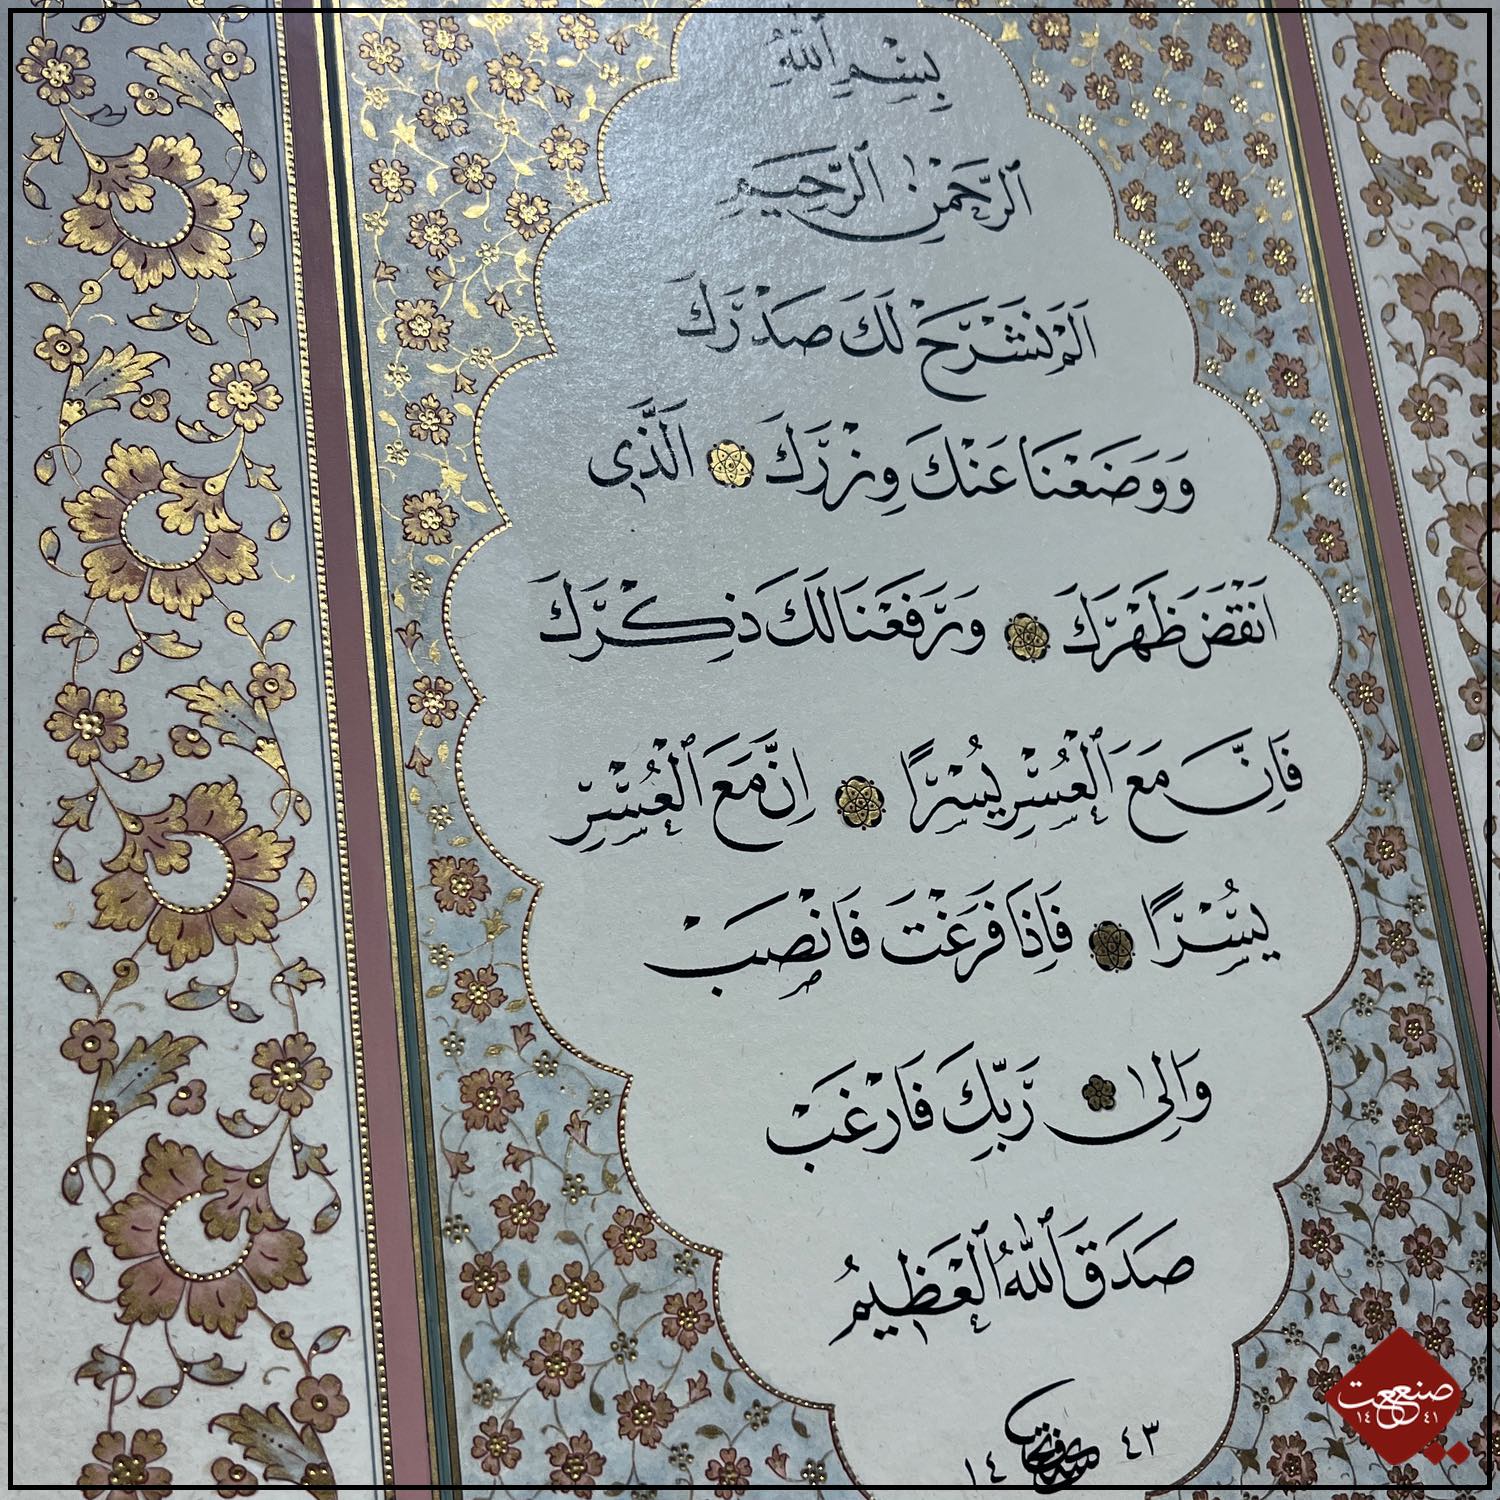 بِسْمِ ٱللّٰهِ
ٱلرَّحْمٰنِ ٱلرَّحِيمِ
اَلَمْ نَشْرَحْ لَكَ صَدْرَكَ
وَوَضَعْنَا عَنْكَ وِزْرَكَ ۝ اَلَّذِى
اَنْقَضَ ظَهْرَكَ ۝ وَرَفَعْنَا لَكَ ذِكْرَكَ
فَاِنَّ مَعَ ٱلْعُسْرِ يُسْرًا ۝ اِنَّ مَعَ ٱلْعُسْرِ
يُسْرًا ۝ فَاِذَا فَرَغْتَ فَانْصَبْ
وَاِلٰى ۝ رَبِّكَ فَارْغَبْ
صَدَقَ ٱللّٰهُ ٱلْعَظِيمُ
١٤ ٤٣
صنعت
١٤ ٤١